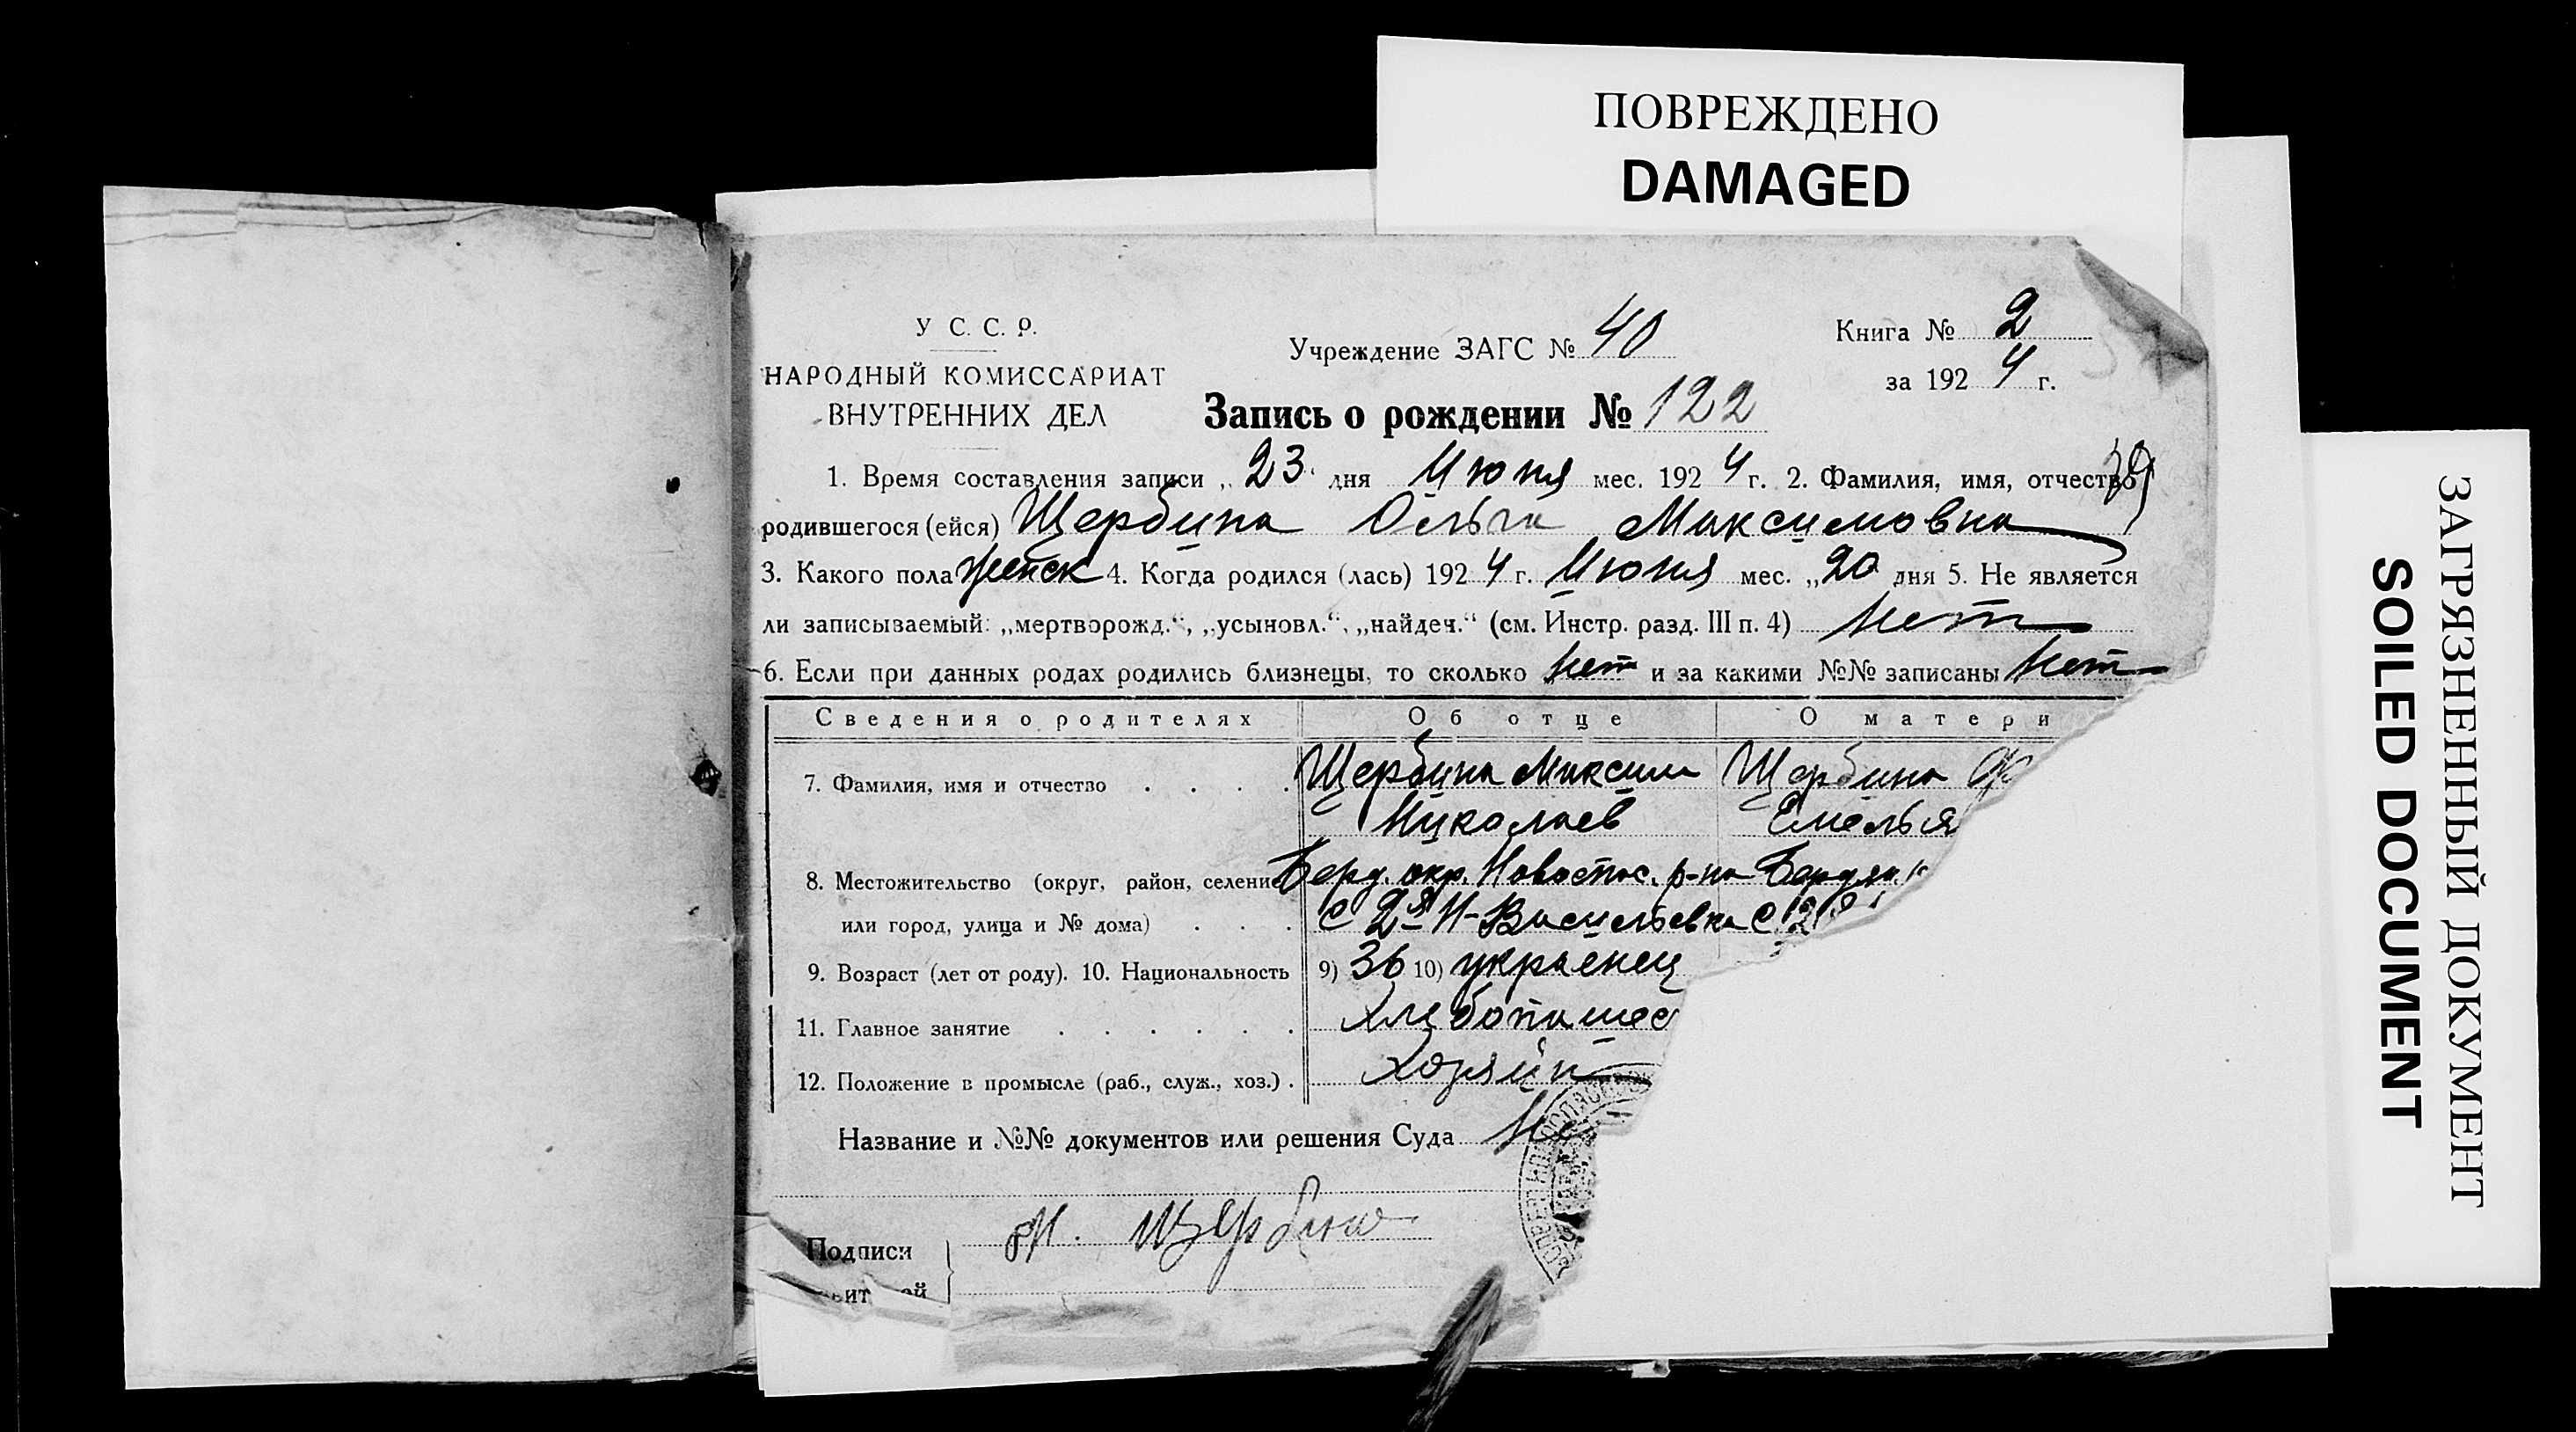 ПОВРЕЖДЕНО
DAMAGED
ЗАГРЯЗНЕННЫЙ ДОКУМЕНТ
SOILED DOCUMENT
У С. С. Р.
НАРОДНЫЙ КОМИССАРИАТ
ВНУТРЕННИХ ДЕЛ
Учреждение ЗАГС № 40
Книга № 2
за 192 4 г.
Запись о рождении № 122
1. Время составления записи „ 23 " дня Июня мес. 192 4 г. 2. Фамилия, имя, отчество
родившегося (ейся) Щербина Ольга Максимовна
3. Какого пола женск 4. Когда родился (лась) 192 4 г. Июня мес. „20 дня 5. Не является
ли записываемый: „мертворожд.“, „усыновл.“, „найден.“ (см. Инстр. разд. III п. 4) нет
6. Если при данных родах родились близнецы, то сколько нет и за какими №№ записаны нет
Сведения о родителях Об отце О матери
7. Фамилия, имя и отчество . . . . Щербина Максим Щербина
Николаев Емелья
8. Местожительство (округ, район, селение Берд. окр. Новоспас. р-на Бердян
или город, улица и № дома) . . . с 2я Н-Васильевка с 2я
9. Возраст (лет от роду). 10. Национальность 9) 36 10) украенец
11. Главное занятие . . . . . . Хлебопашес
12. Положение в промысле (раб., служ., хоз.) . Хозяин
Название и №№ документов или решения Суда Не
Подписи М. Щербина